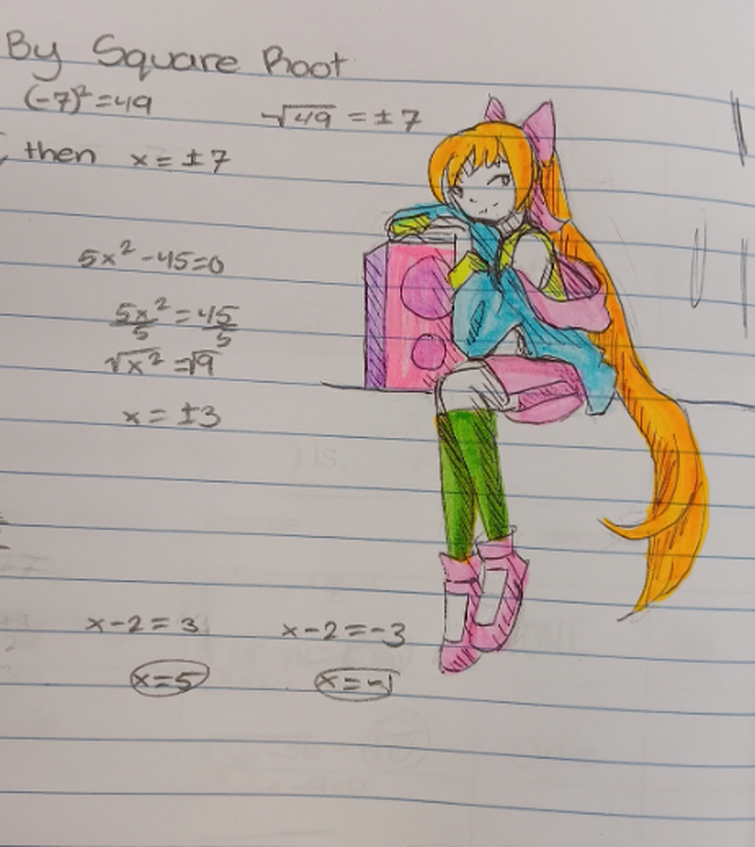 By Square Root
(-7)² = 49 √49 = ±7
, then x = ±7
5x² - 45 = 0
5x²/5 = 45/5
√x² = √9
x = ±3
x - 2 = 3 x - 2 = -3
x = 5 x = -1